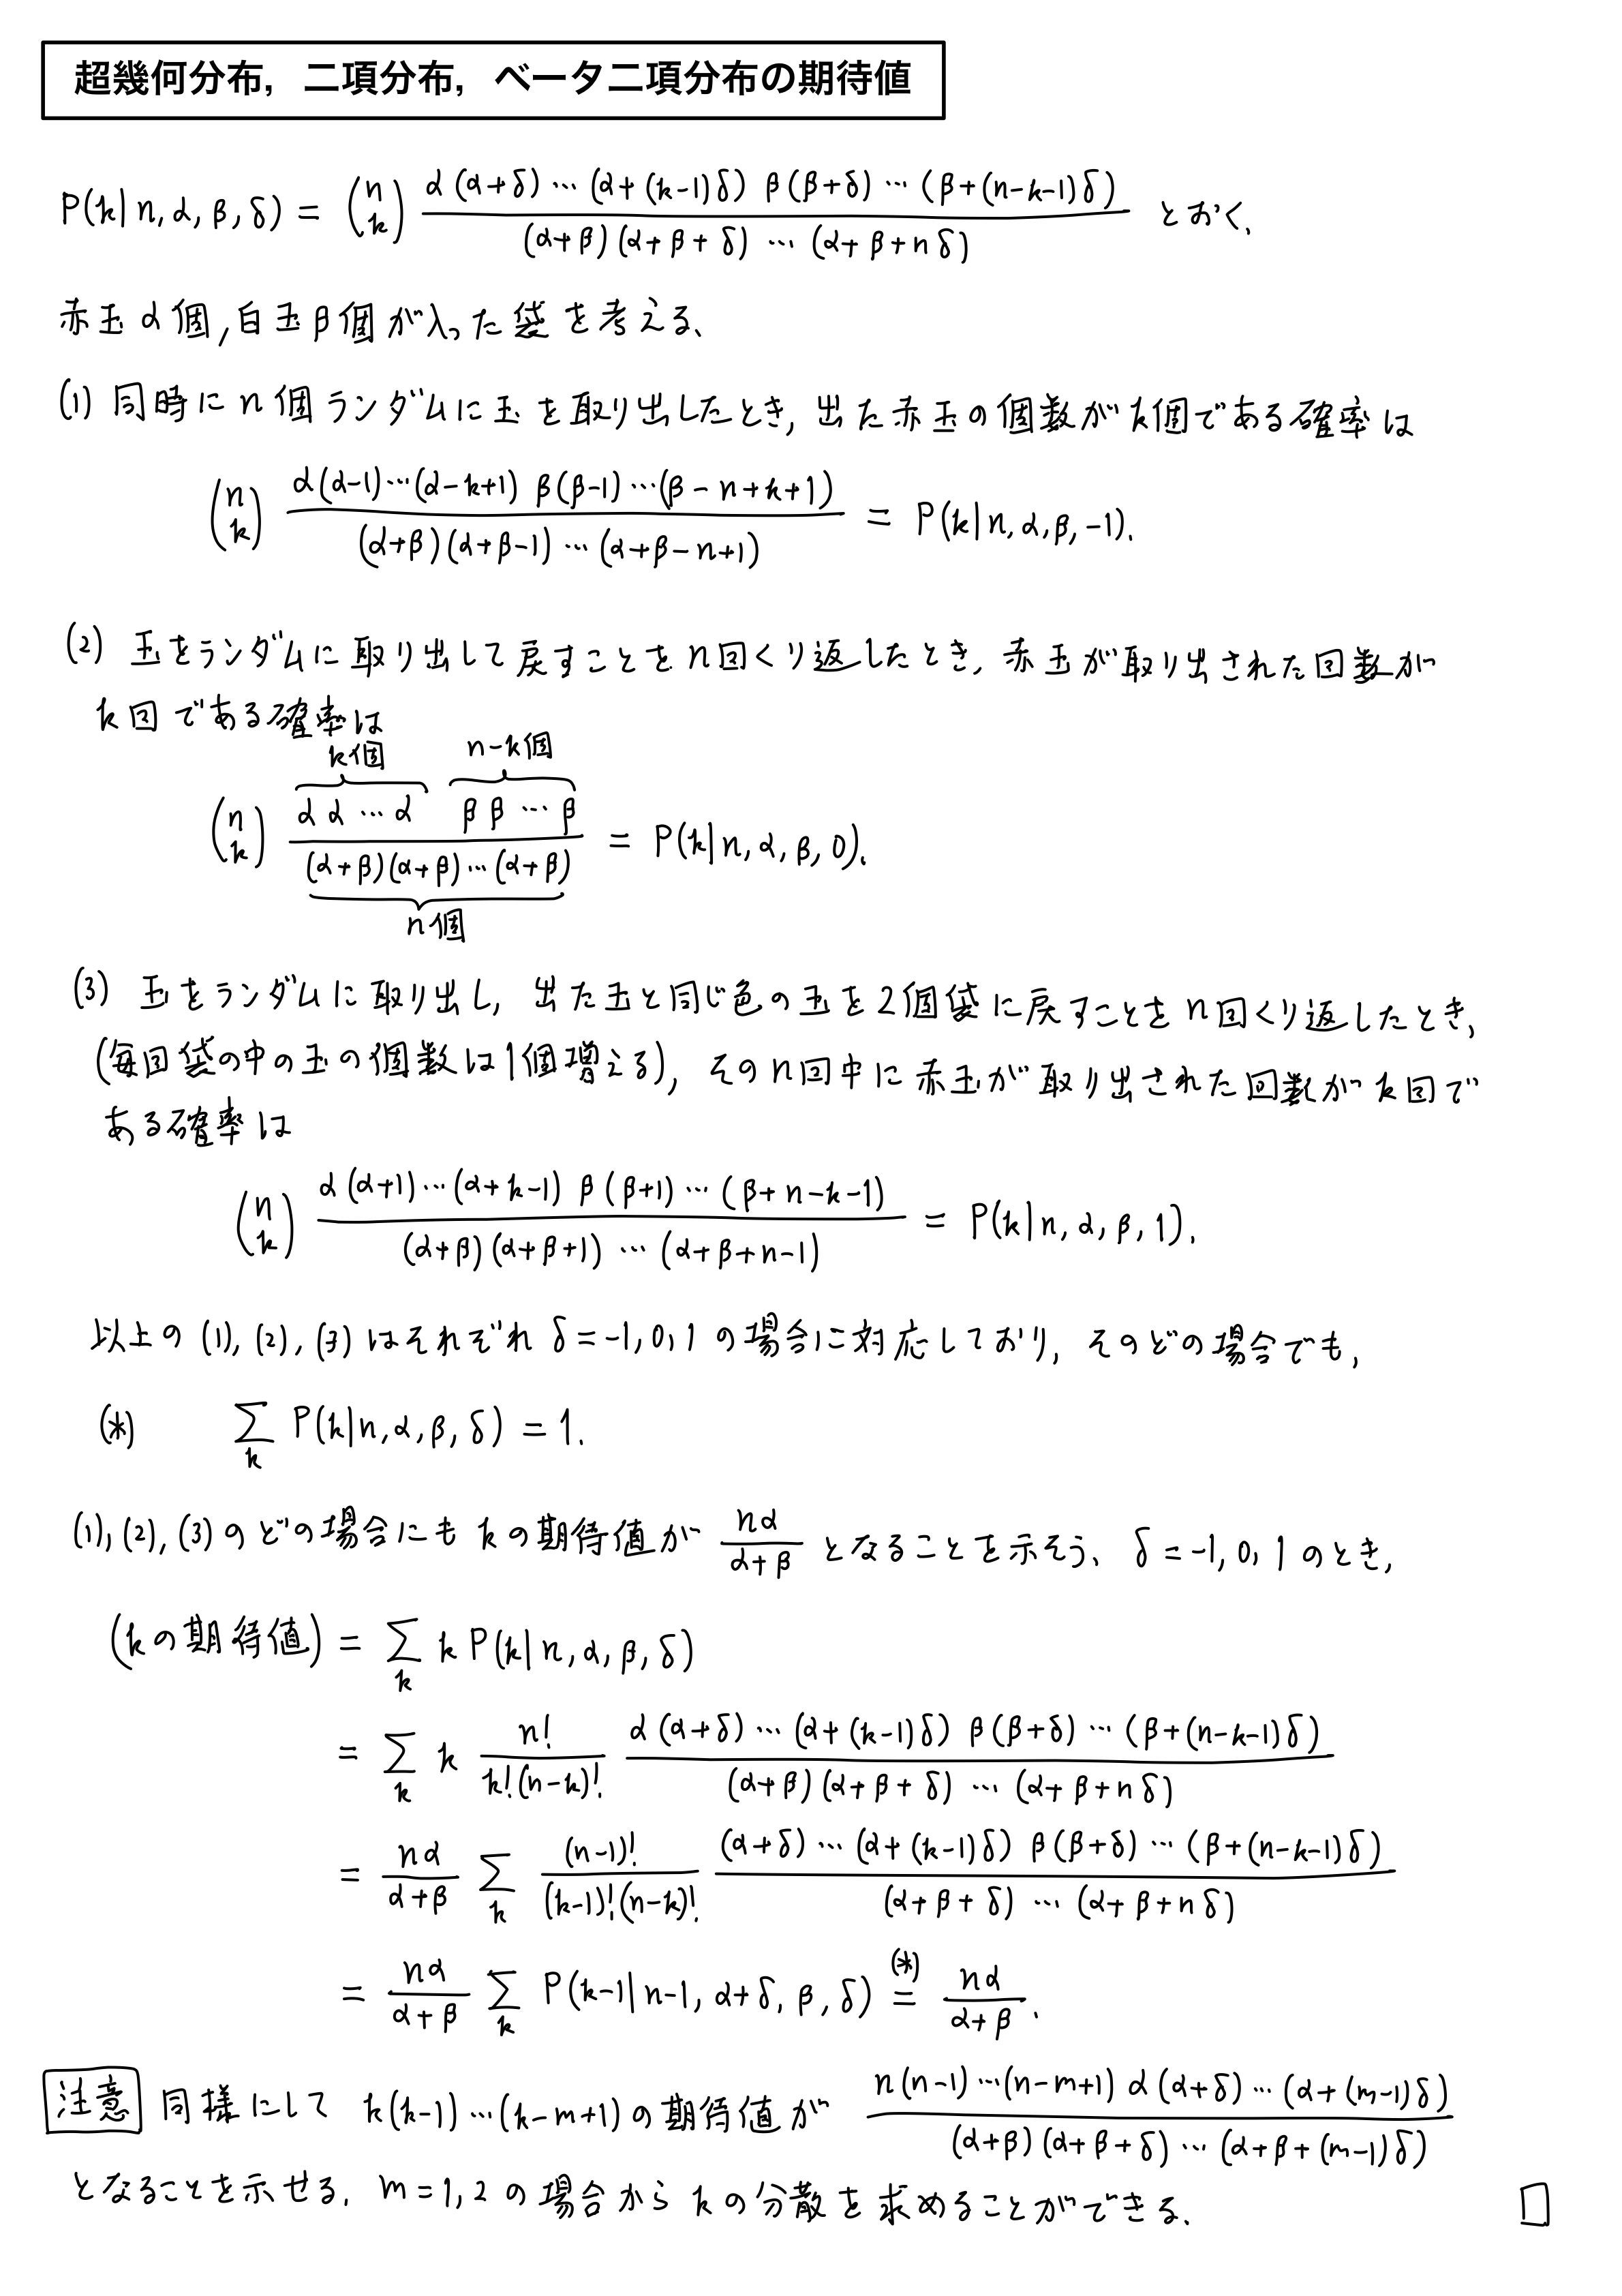 超幾何分布, 二項分布, ベータ二項分布の期待値
P(k|n, α, β, δ) = (n k) α(α+δ)…(α+(k-1)δ) β(β+δ)…(β+(n-k-1)δ) / (α+β)(α+β+δ)…(α+β+nδ) とおく.
赤玉α個, 白玉β個が入った袋を考える.
(1) 同時にn個ランダムに玉を取り出したとき, 出た赤玉の個数がk個である確率は
(n k) α(α-1)…(α-k+1) β(β-1)…(β-n+k+1) / (α+β)(α+β-1)…(α+β-n+1) = P(k|n, α, β, -1).
(2) 玉をランダムに取り出して戻すことをn回くり返したとき, 赤玉が取り出された回数が
k回である確率は
k個 n-k個
(n k) αα…α ββ…β / (α+β)(α+β)…(α+β) = P(k|n, α, β, 0).
n個
(3) 玉をランダムに取り出し, 出た玉と同じ色の玉を2個袋に戻すことをn回くり返したとき,
(毎回袋の中の玉の個数は1個増える), そのn回中に赤玉が取り出された回数がk回で
ある確率は
(n k) α(α+1)…(α+k-1) β(β+1)…(β+n-k-1) / (α+β)(α+β+1)…(α+β+n-1) = P(k|n, α, β, 1).
以上の(1), (2), (3)はそれぞれδ=-1, 0, 1の場合に対応しており, そのどの場合でも,
(*) Σ_k P(k|n, α, β, δ) = 1.
(1), (2), (3)のどの場合にもkの期待値が nα / α+β となることを示そう. δ=-1, 0, 1のとき,
(kの期待値) = Σ_k k P(k|n, α, β, δ)
= Σ_k k n! / k!(n-k)! α(α+δ)…(α+(k-1)δ) β(β+δ)…(β+(n-k-1)δ) / (α+β)(α+β+δ)…(α+β+nδ)
= nα / α+β Σ_k (n-1)! / (k-1)!(n-k)! (α+δ)…(α+(k-1)δ) β(β+δ)…(β+(n-k-1)δ) / (α+β+δ)…(α+β+nδ)
= nα / α+β Σ_k P(k-1|n-1, α+δ, β, δ) (*)= nα / α+β.
注意 同様にして k(k-1)…(k-m+1)の期待値が n(n-1)…(n-m+1) α(α+δ)…(α+(m-1)δ) / (α+β)(α+β+δ)…(α+β+(m-1)δ)
となることを示せる. m=1, 2の場合からkの分散を求めることができる. □